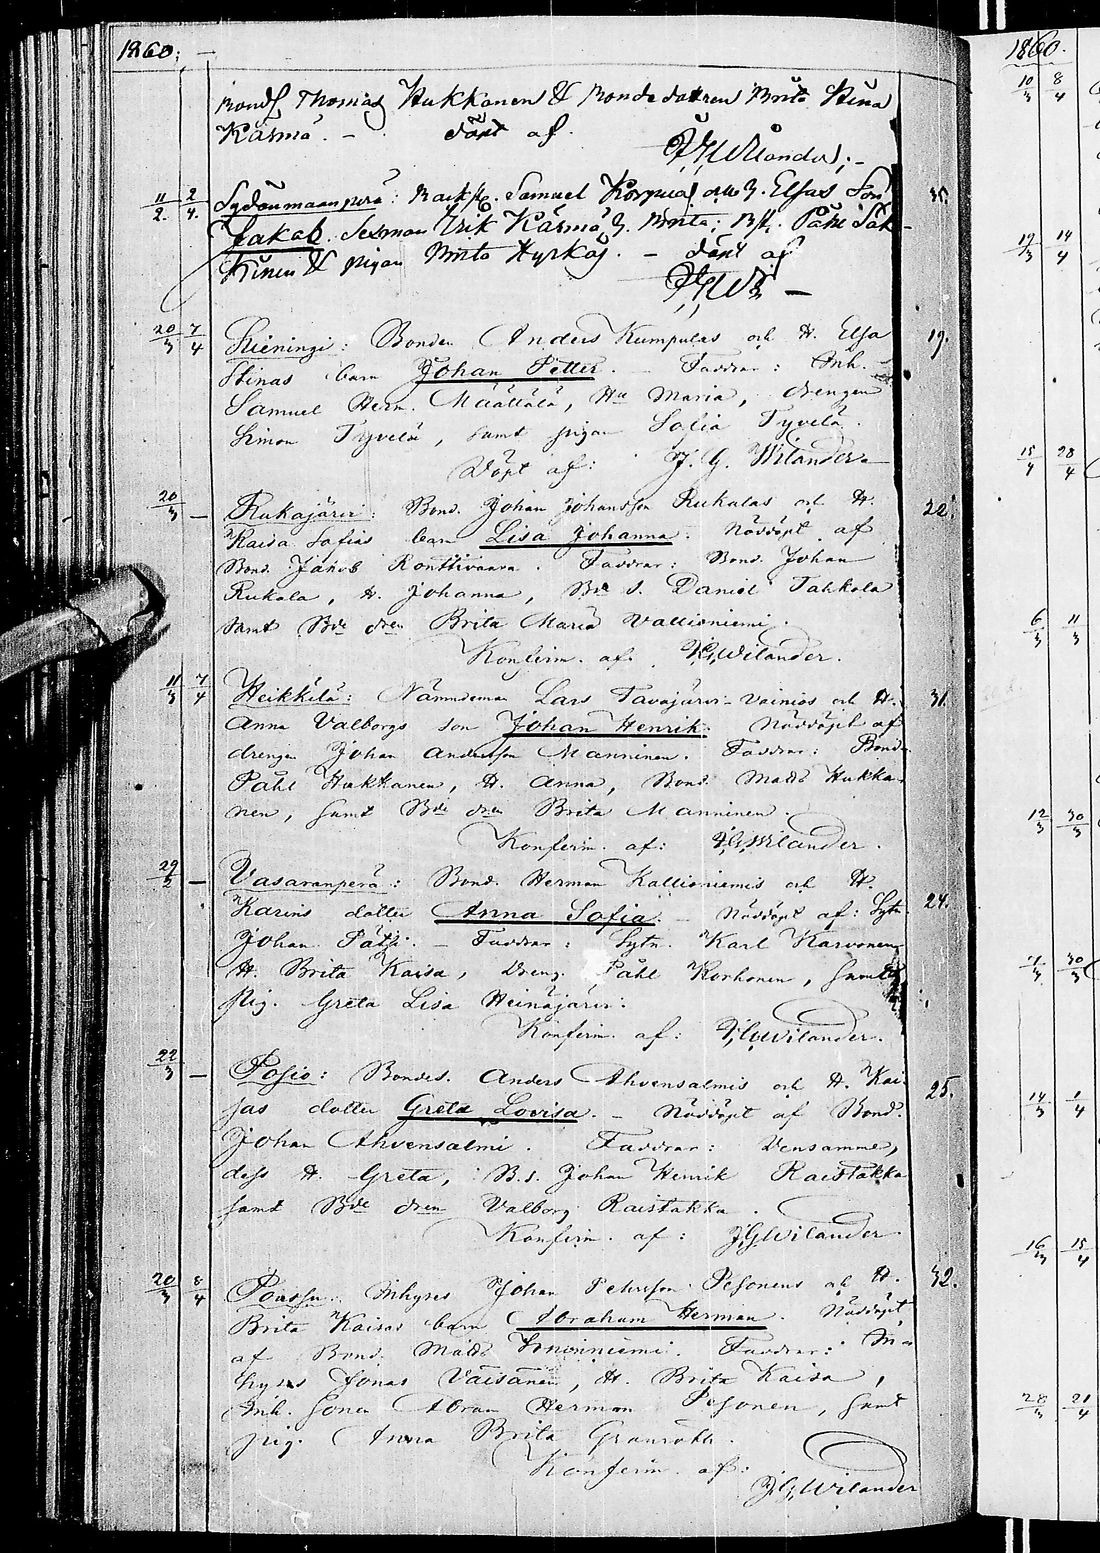 1860. 
Bonds. Thomas Hukkanen & Bondedottren Brita Stina
Kärmä. - döpt af
J. G. Wilander. -
11/2 2/4 Sydänmaanperä: Samuel Korpuas Elsas Son 35.
Jakob. Sexman Erik Kärmä, h. Brita; Påhl
& pigan Brita Hyrkäs. - döpt af
J. G. Wr -
20/3 7/4 Bonden Anders Kumpulas och H. Elsa 19.
Stinas barn Johan Petter. - Faddrar: Inh.
Samuel Herm. Määttälä, Hu Maria, drengen
Simon Tyvelä, samt pigan Sofia Tyvelä.
Döpt af: J. G. Wilander
20/3 - Rukajärvi: Bond. Johan Johansson Rukalas och H. 22.
Kaisa Sofias barn Lisa Johanna. Nöddöpt af
Bond. Jakob Konttivaara. Faddrar: Bond. Johan
Rukala, H. Johanna, Bde S. Daniel Takkala
samt Bde dren Brita Maria Vallioniemi.
Konfirm. af. J. G. Wilander.
11/3 7/4 Heikkilä: Nämndeman Lars Tavajärvi-Vainios och H. 31.
Anna Valborgs son Johan Henrik. Nöddöpt af
drengen Johan Andersson Manninen. Faddrar: Bond.
Påhl Hukkanen, H. Anna, Bond. Matts Hukka-
nen, samt Bde dren Brita Manninen.
Konfirm. af: J. G. Wilander.
- Vasaranperä: Bond. Herman Kallioniemis och H.
Karins dotter Anna Sofia. - Nöddöpt af: Sytn. 24.
Johan Pätsi. - Faddrar: Sytn. Karl Karvonen
H. Brita Kaisa, Dreng. Påhl Korhonen, samt
Pig. Greta Lisa Heinäjärvi.
Konfirm. af: J. G. Wilander.
22/3 - Posio: Bondes. Anders Ahvensalmis och H. Kai 25.
sas dotter Greta Lovisa. - Nöddöpt af Bond.
Johan Ahvensalmi. Faddrar: Densamme,
dess H. Greta, B.s. Johan Henrik Raistakka
samt Bde dren Valborg Raistakka.
Konfirm. af: J G Wilander
20/3 8/4 Poussu: Inhyses Johan Pehrsson Pesonens och H. 32.
Brita Kaisas barn Abraham Herman. Nöddöpt
af Bond. Matts. Faddrar: In-
hyses Jonas Väisänen, H. Brita Kaisa,
Inh. sonen Abram Herman Pesonen, samt
pig. Anna Brita Granroth.
Konfirm. af:
J G Wilander
1860.
10/3 8/4
19/3 14/4
15/4 28/4
6/3 11/3
12/3 30/3
30/3
14/3 1/4
16/3 15/4
28/3 21/4